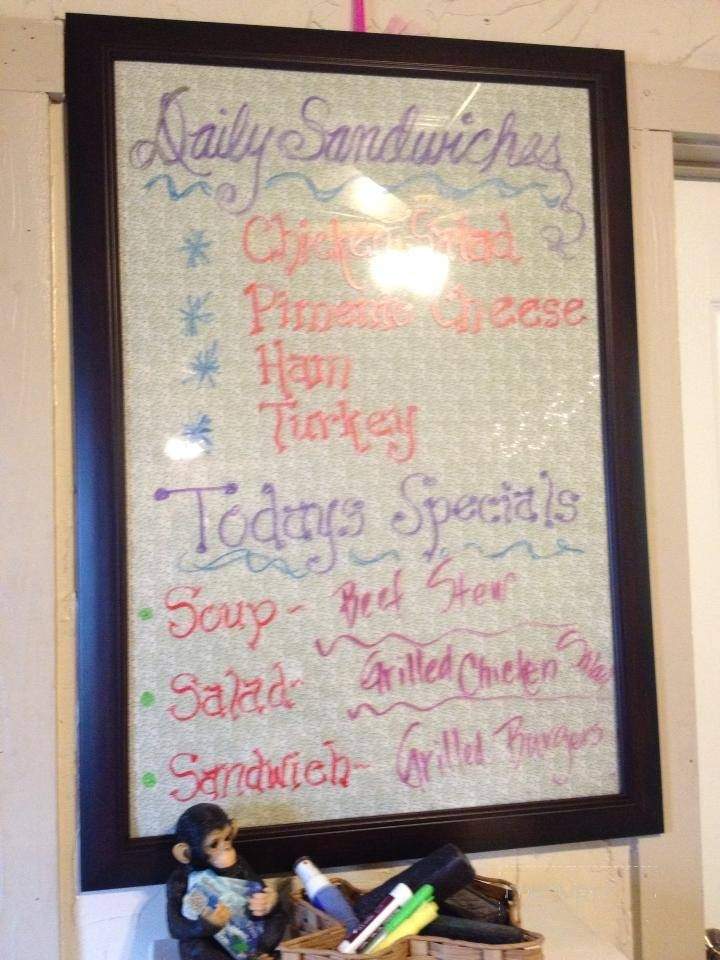 Daily Sandwiches
Chicken Salad
Pimento Cheese
Ham
Turkey
Todays Specials
Soup - Beef Stew
Salad- Grilled Chicken Salad
Sandwich- Grilled Burgers